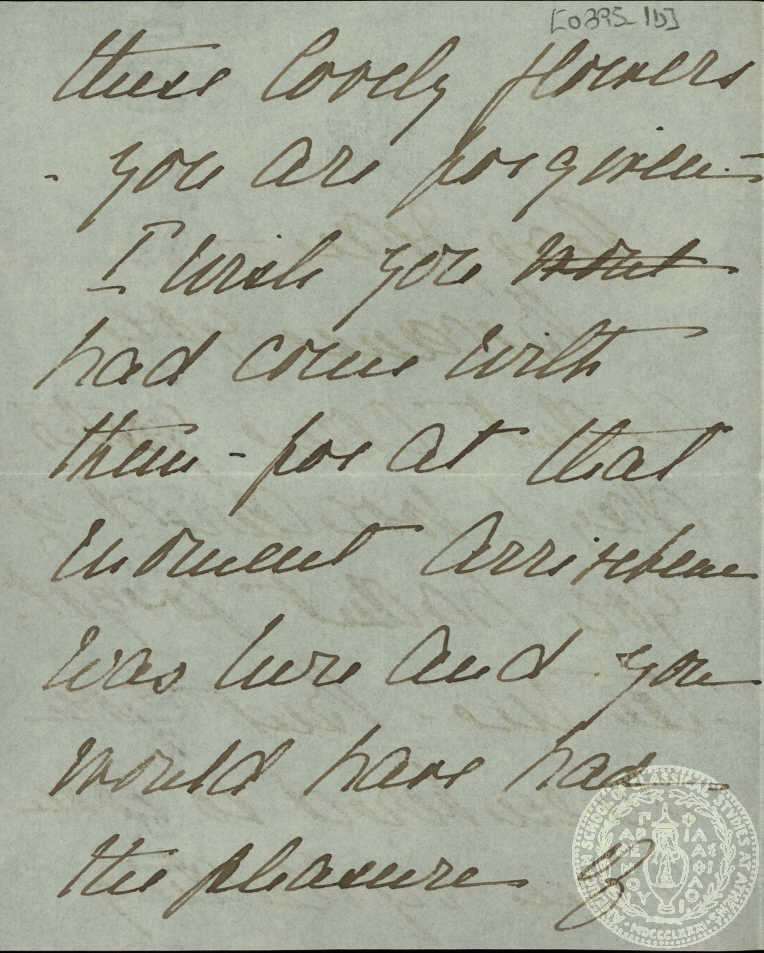 [0395_1b]
these lovely flowers
- you are forgiven -
I wish you wont
had come with
them - for at that
moment
was here and you
would have had
the pleasure of
AMERICAN SCHOOL OF CLASSICAL STUDIES AT ATHENS
MDCCCLXXXI